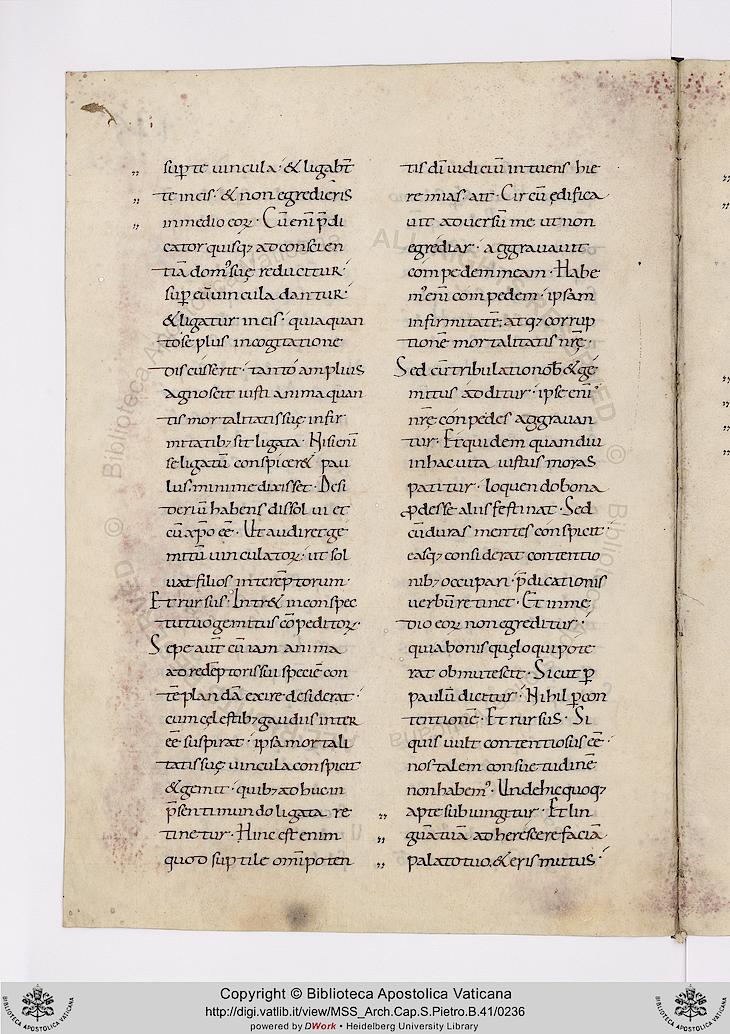 „ sup te uincula · & ligabt̄
„ te in eis · & non egredieris
„ in medio eoꝝ · Cū enī p̄di
cator quisq; ad conscien
tiā dom' suę reducitur ·
sup eū uincula dantur ·
& ligatur in eis · quia quan
to se plus in cogitatione
discusserit · tanto amplius
agnoscit iusti anima quan
tis mortalitatis suę infir
mitatib; sit ligata · Nisi enī
se ligatū conspicer& pau
lus minime dixisset · Desi
deriū habens dissolui et
cū xp̄o ee · Ut audiret ge
mitū uinculatoꝝ · ut sol
uat filios intereptorum ·
Et rursus · Intr& in conspec
tu tuo gemitus cōpeditoꝝ ·
Sepe aut̄ cū iam anima
ad redēptoris sui speciē con
tēplandā exire desiderat ·
cum cęlestib; gaudiis inter
ee suspirat · ipsa mortali
tatis suę uincula conspicit
& gemit · quib; adhuc in
p̄senti mundo ligata re
tinetur · Hinc est enim
quod suptile omīpoten
tis dī iudiciū intuens hie
remias · ait · Circū ędifica
uit aduersū me ut non
egrediar · aggrauauit
compedem meam · Habe
m' enī compedem · ipsam
infirmitatē · atq; corrup
tionē mortalitatis nr̄ę ·
Sed cū tribulationob̄ & ge
mitus additur · ipse enī
nr̄ę conpedes aggrauan
tur · Et quidem quamdiu
in hac uita iustus moras
patitur · loquendo bona
ꝓdesse aliis festinat · Sed
cū duras mentes conspicit ·
easq; considerat contentio
nib; occupari · p̄dicationis
uerbū retinet · Et in me
dio eoꝝ non egreditur ·
quia bonis quę loqui pote
rat obmutescit · Sicut ꝑ
paulū dicitur · Nihil ꝑ con
tentionē · Et rursus · Si
quis uult contentiosus ee ·
nos talem consuetudinē
non habem' · Unde hic quoq;
apte subiungitur · Et lin
„ guā tuā adherescere faciā
„ palato tuo · & eris mutus ·
Copyright © Biblioteca Apostolica Vaticana
http://digi.vatlib.it/view/MSS_Arch.Cap.S.Pietro.B.41/0236
powered by DWork • Heidelberg University Library